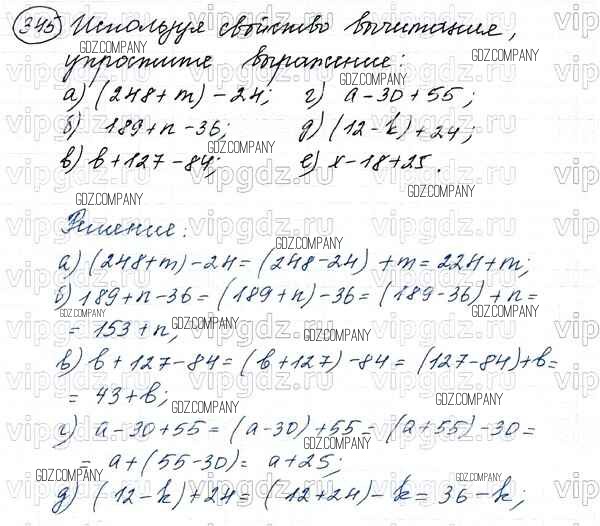 345 Используя свойство вычитания,
упростите выражение:
а) (248+m)-24; г) a-30+55;
б) 189+n-36; д) (12-k)+24;
в) b+127-84; е) x-18+25.
Решение:
а) (248+m)-24=(248-24)+m=224+m;
б) 189+n-36=(189+n)-36=(189-36)+n=
=153+n;
в) b+127-84=(b+127)-84=(127-84)+b=
=43+b;
г) a-30+55=(a-30)+55=(a+55)-30=
=a+(55-30)=a+25;
д) (12-k)+24=(12+24)-k=36-k;